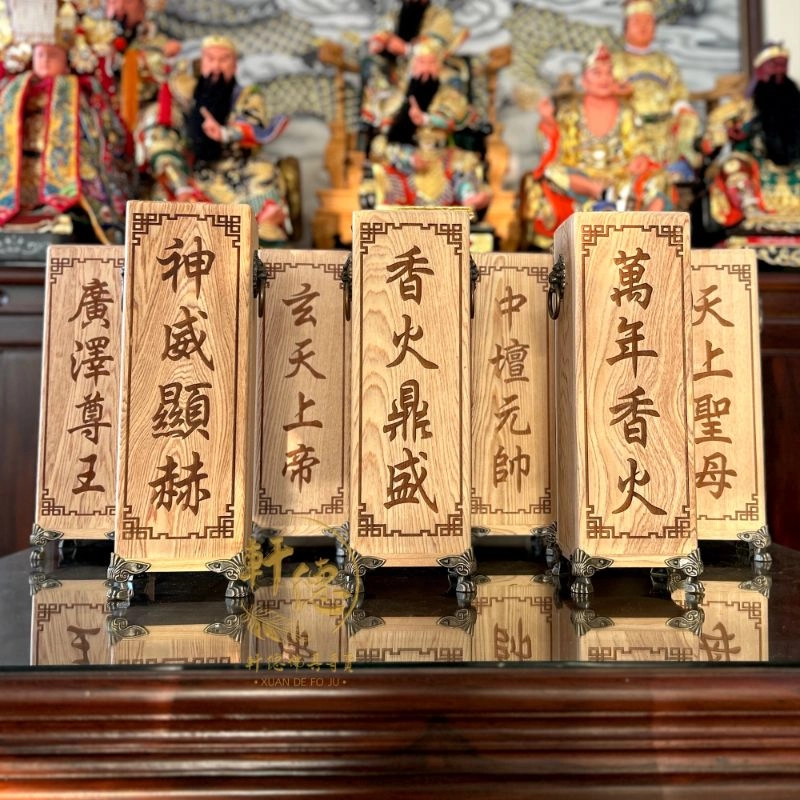 廣澤尊王
神威顯赫
玄天上帝
香火鼎盛
中壇元帥
萬年香火
天上聖母
軒德
軒德佛具專賣
• XUAN DE FO JU •